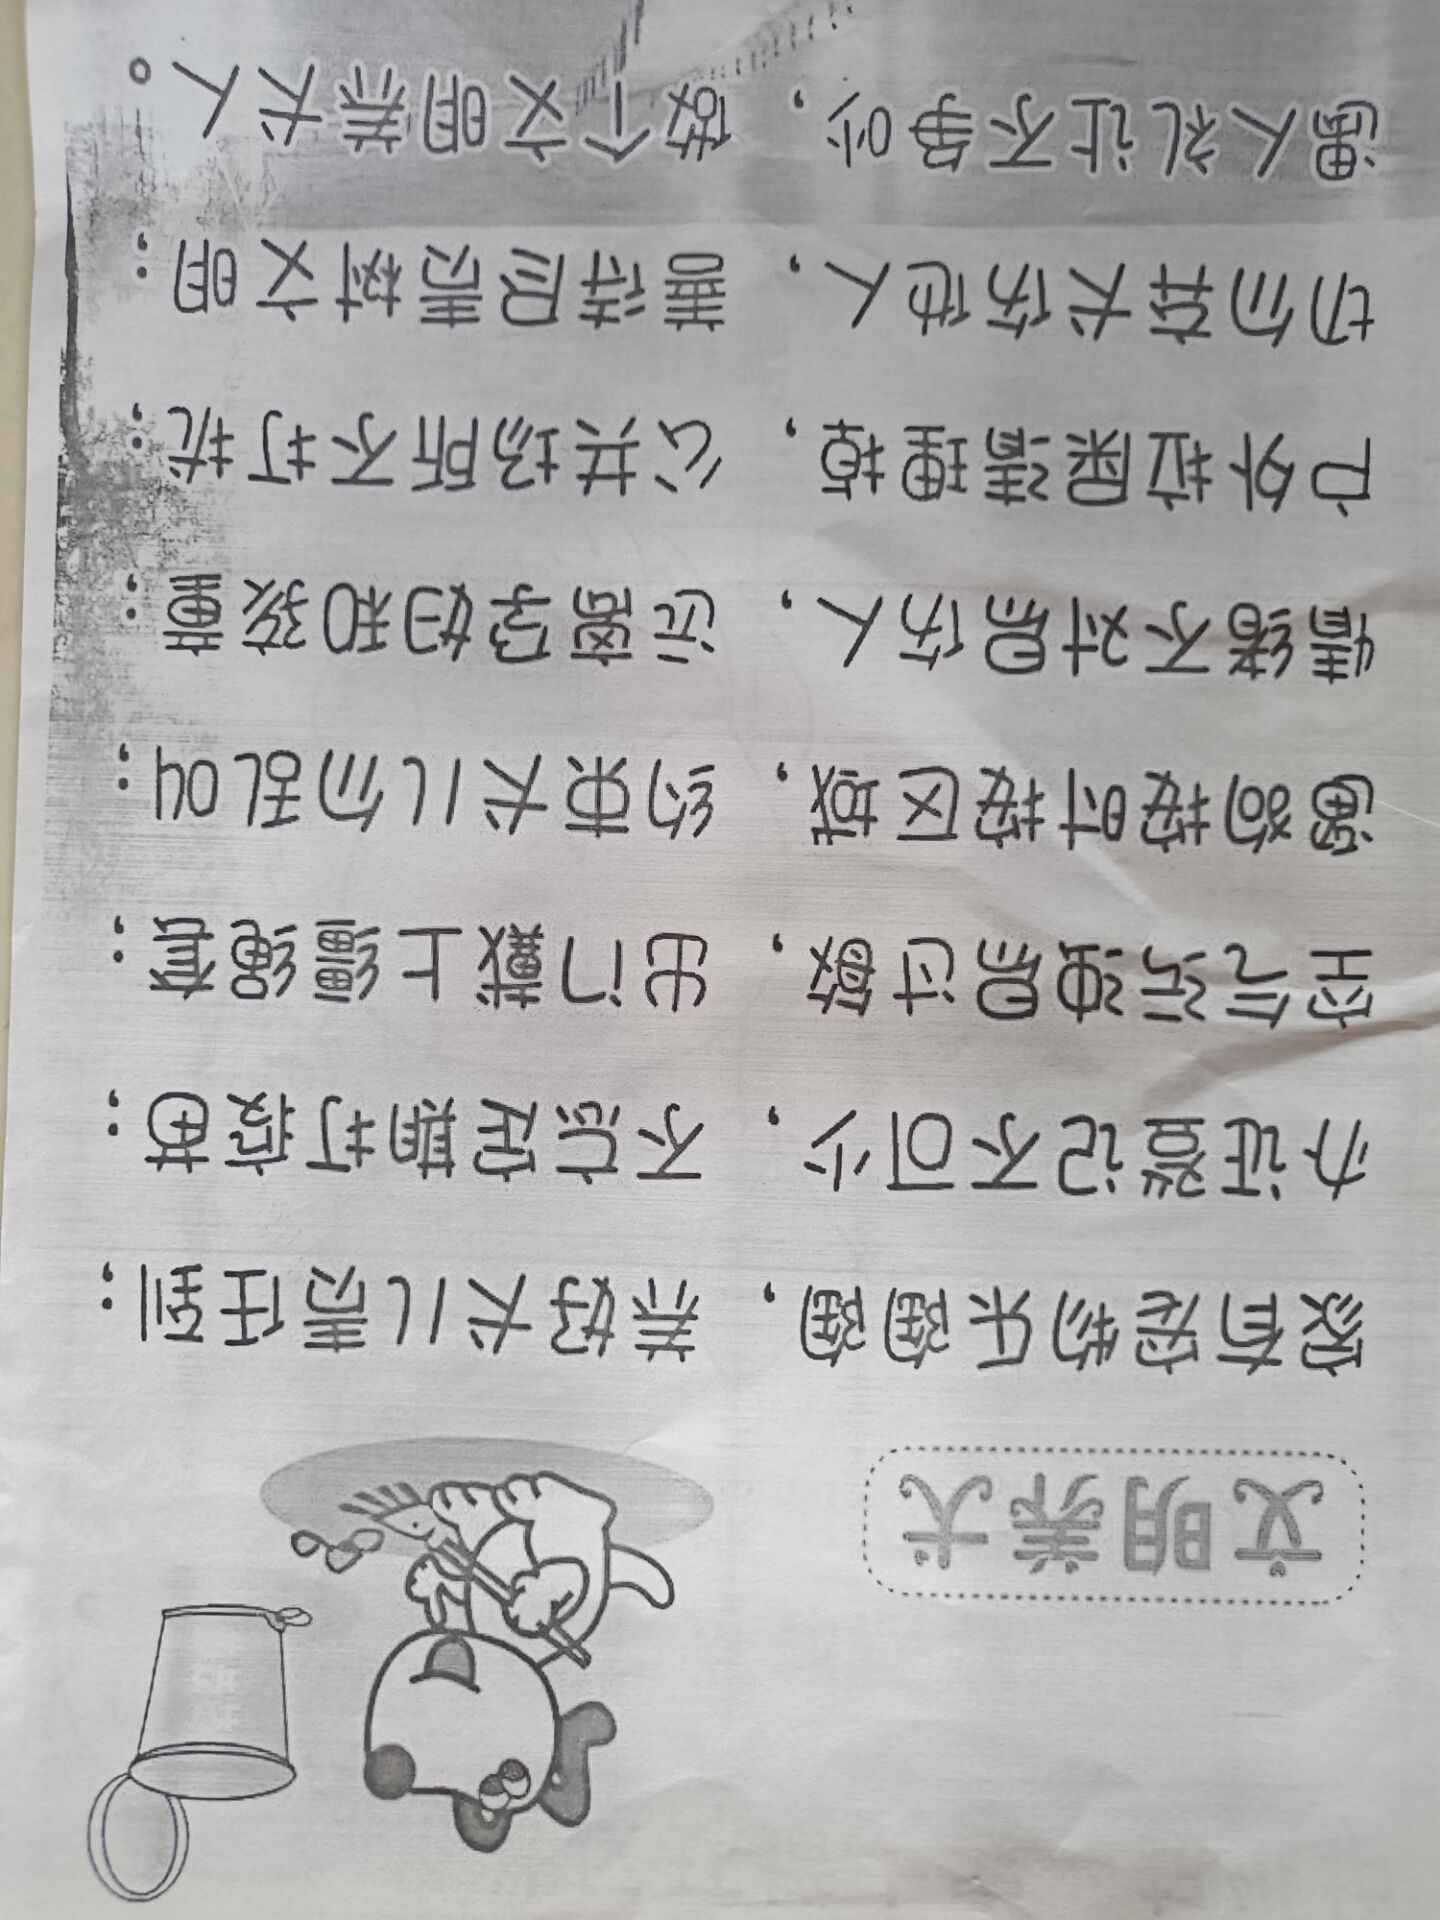 文明养犬
家有宠物乐陶陶，养好犬儿责任到；
办证登记不可少，不忘定期打疫苗；
空气污浊易过敏，出门戴上缰绳套；
遛狗按时按区域，约束犬儿勿乱叫；
情绪不对易伤人，远离孕妇和孩童；
户外拉屎清理掉，公共场所不打扰；
切勿弃犬伤他人，善待尽责树文明；
遇人礼让不争吵，做个文明养犬人。